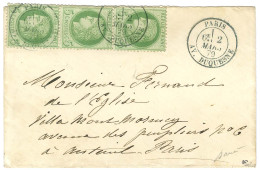 PARIS
2
MARS
72
AV. DUQUESNE
Monsieur Fernand
de l'Eglise
Villa Montmorency
avenue des peupliers no 6
à Auteuil Paris